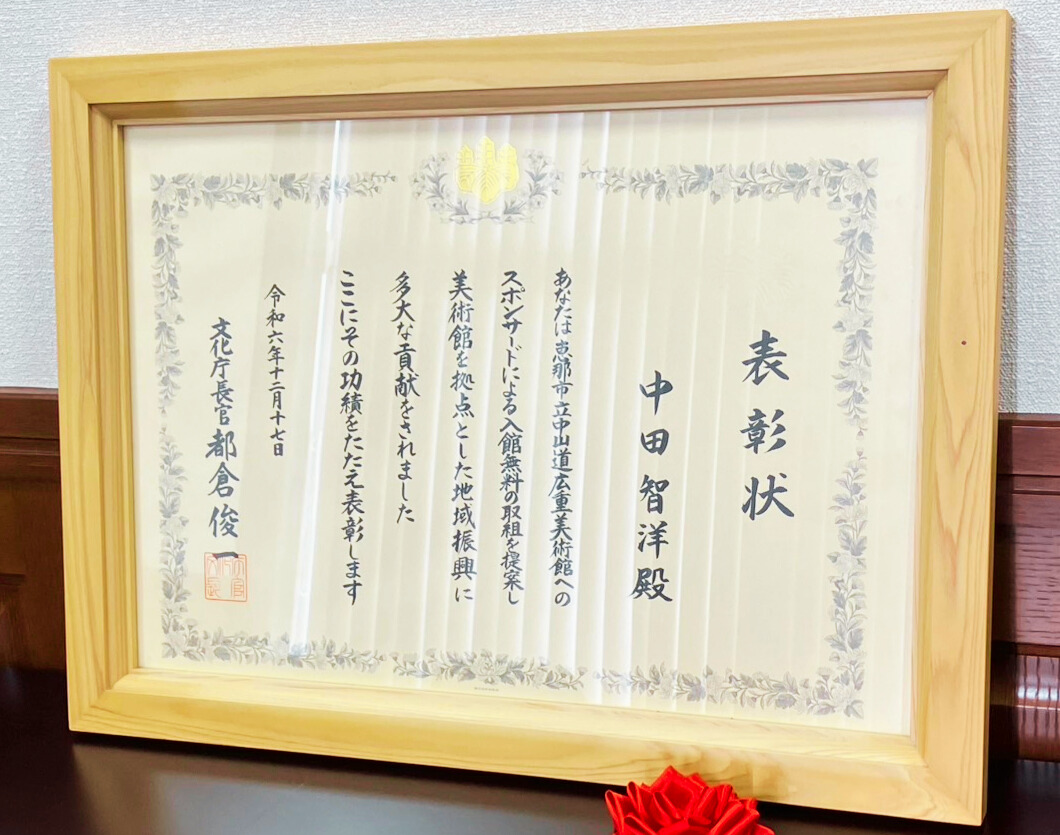 表彰状
中田智洋殿
あなたは恵那市立中山道広重美術館への
スポンサードによる入館無料の取組を提案し
美術館を拠点とした地域振興に
多大な貢献をされました
ここにその功績をたたえ表彰します
令和六年十二月十七日
文化庁長官 都倉俊一